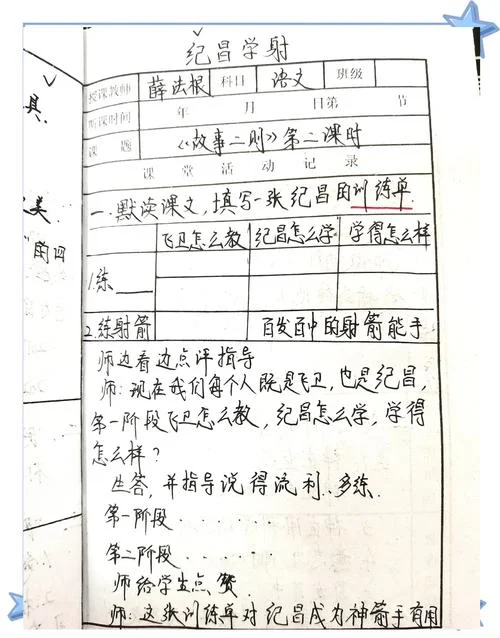 纪昌学射
授课教师 薛法根 科目 语文 班级
听课时间 年 月 日第 节
课题 《故事二则》第二课时
课堂活动记录
一.默读课文,填写一张纪昌的训练单.
飞卫怎么教 纪昌怎么学 学得怎么样
1.练____
2.练射箭 百发百中的射箭能手
师边看边点评指导
师:现在我们每个人既是飞卫,也是纪昌,
第一阶段飞卫怎么教,纪昌怎么学,学得
怎么样?
生答,并指导说得流利..多练.
第一阶段......
第二阶段......
师给学生点赞.
师:这张训练单对纪昌成为神箭手有用
具.
美.
"的四